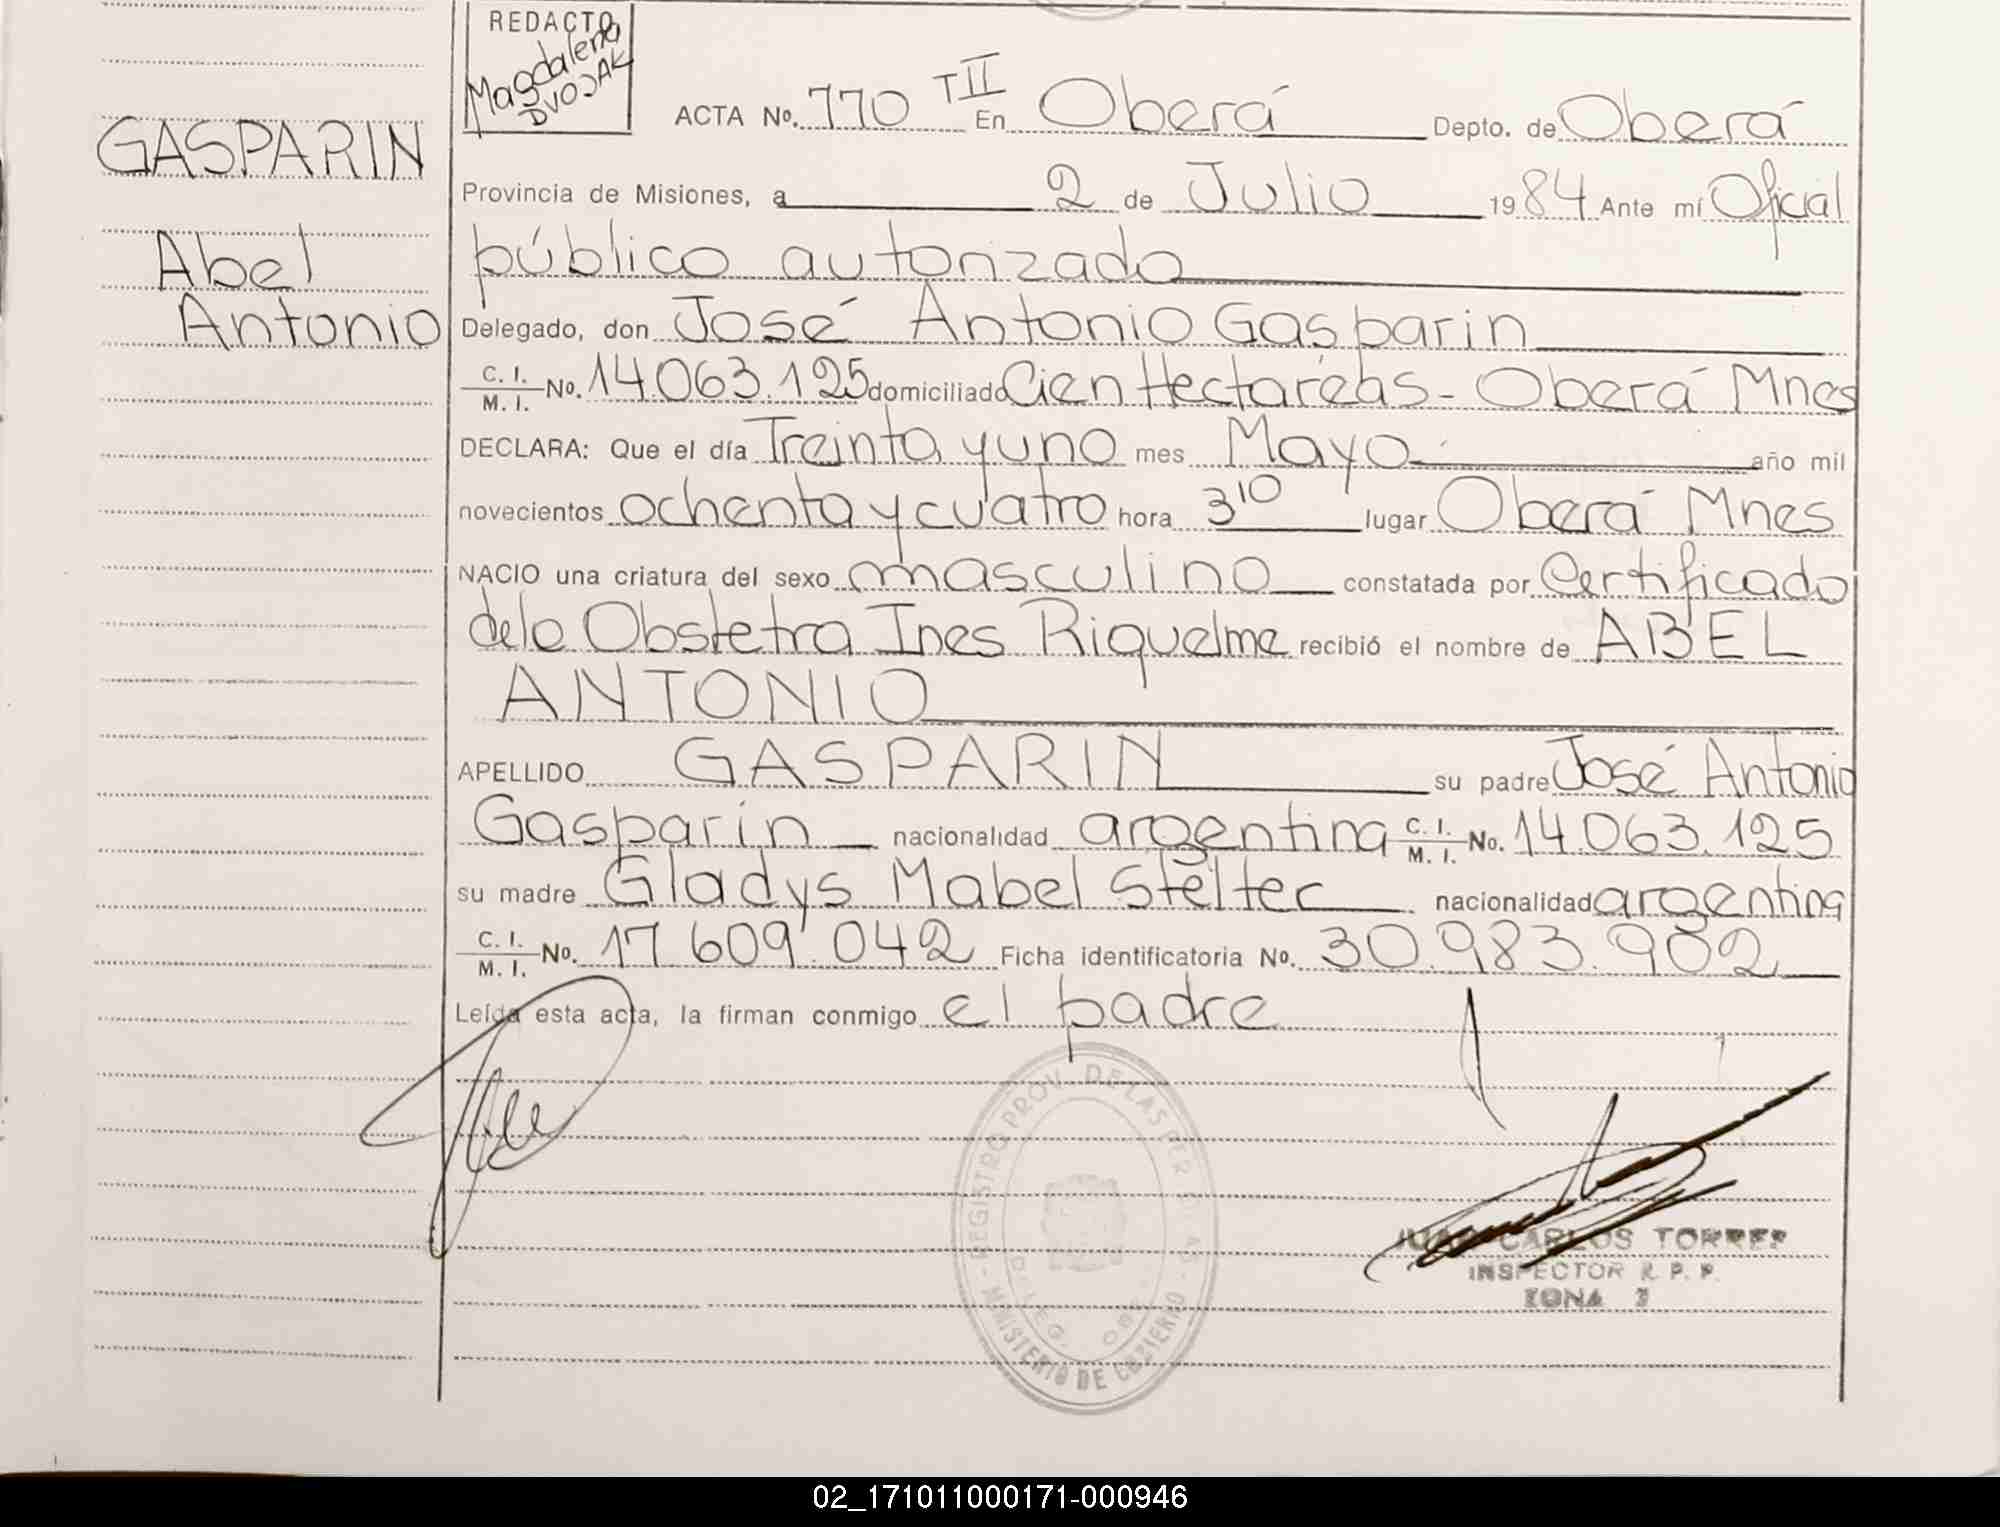 REDACTO
Magdalena
DVOJAK
GASPARIN
Abel
Antonio
ACTA No. 770 TII En Oberá Depto. de Oberá
Provincia de Misiones, a 2 de Julio 1984 Ante mí Oficial
público autorizado
Delegado, don José Antonio Gasparin
C. I. / M. I. No. 14.063.125 domiciliado Cien Hectáreas - Oberá Mnes
DECLARA: Que el día Treinta y uno mes Mayo año mil
novecientos ochenta y cuatro hora 3 10 lugar Oberá Mnes
NACIO una criatura del sexo masculino constatada por Certificado
dela Obstetra Ines Riquelme recibió el nombre de ABEL
ANTONIO
APELLIDO GASPARIN su padre José Antonio
Gasparin nacionalidad argentina C. I. / M. I. No. 14.063.125
su madre Gladys Mabel Stelter nacionalidad argentina
C. I. / M. I. No. 17.609.042 Ficha identificatoria No. 30.983.902
Leída esta acta, la firman conmigo el padre
REGISTRO PROV. DE LAS PERSONAS
MINISTERIO DE GOBIERNO
JUAN CARLOS TORRES
INSPECTOR R. P. P.
ZONA 3
02_171011000171-000946